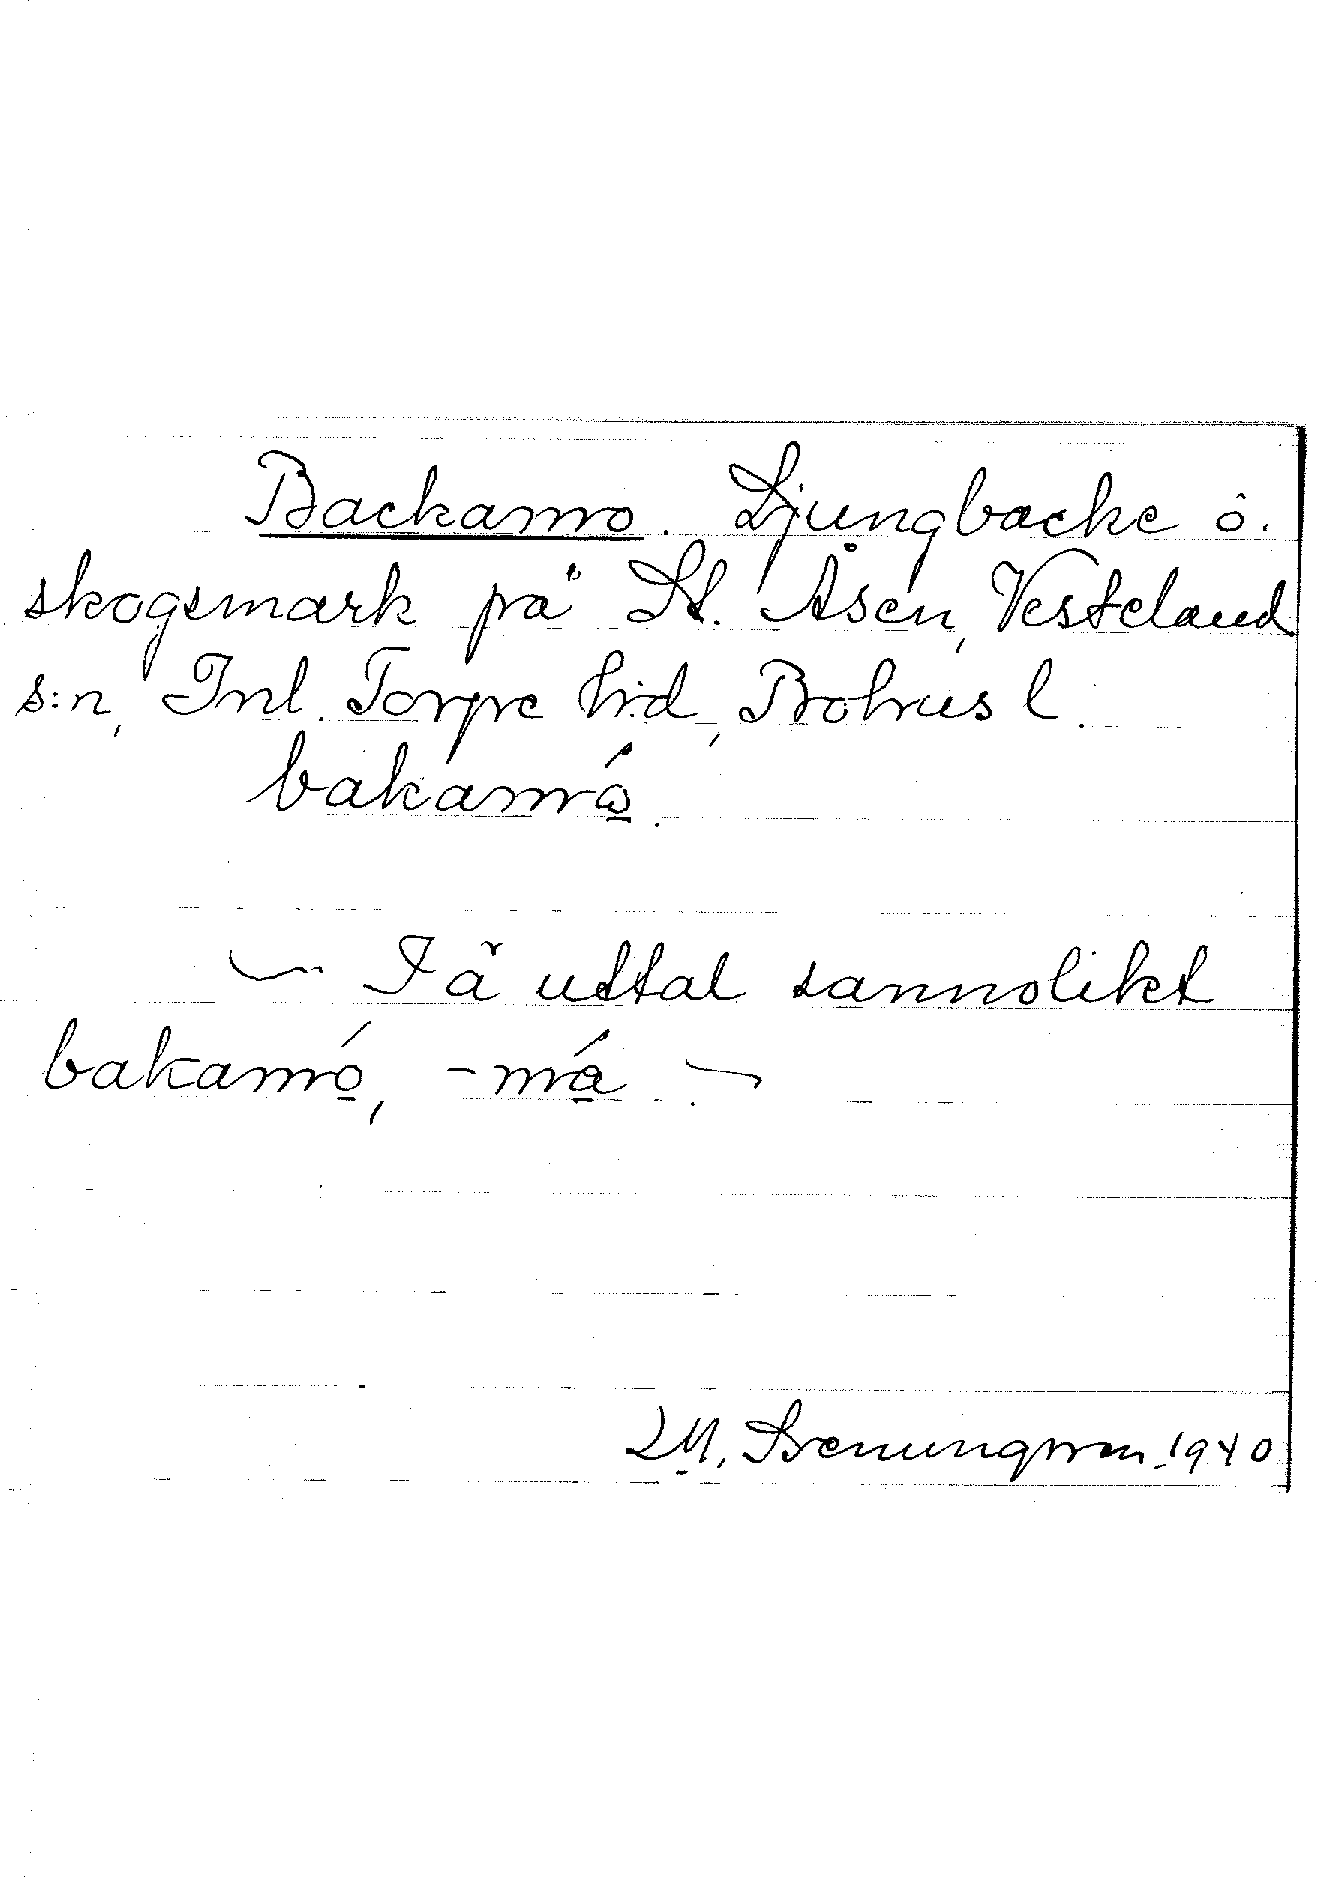 Backamo. Ljungbacke o.
skogsmark på St. Åsen, Vesteland
s:n, Inl. Torpe h:d, Bohus l.
bakamó.
Fä uttal sannolikt
bakamó, -má
Svenungsson 1940